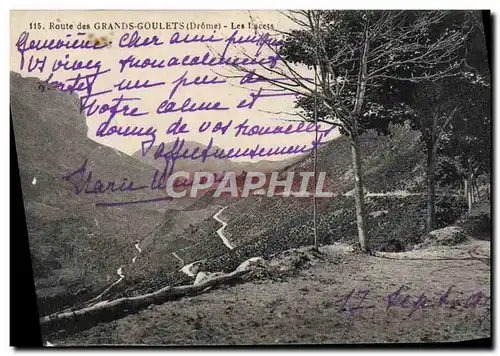 115. Route des GRANDS-GOULETS (Drôme) - Les Lacets
Geneviève Cher ami puisque
vous vivez monacalement
sortez un peu de
votre calme et
donnez de vos nouvelles
Affectueusement
Marie
CPARAMA.COM
17 Sept